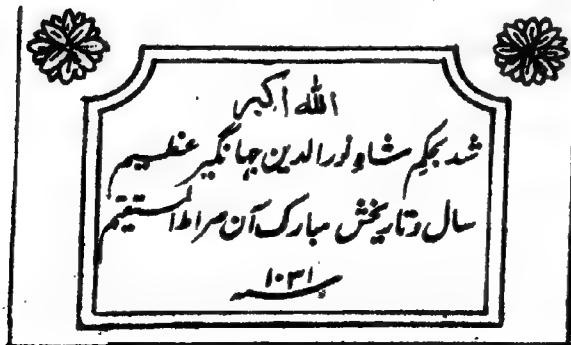 الله اکبر
شد بحکم شاہ نورالدین جہانگیر عظیم
سال وتاریخش مبارک آن صراط المستقیم
۱۰۳۱